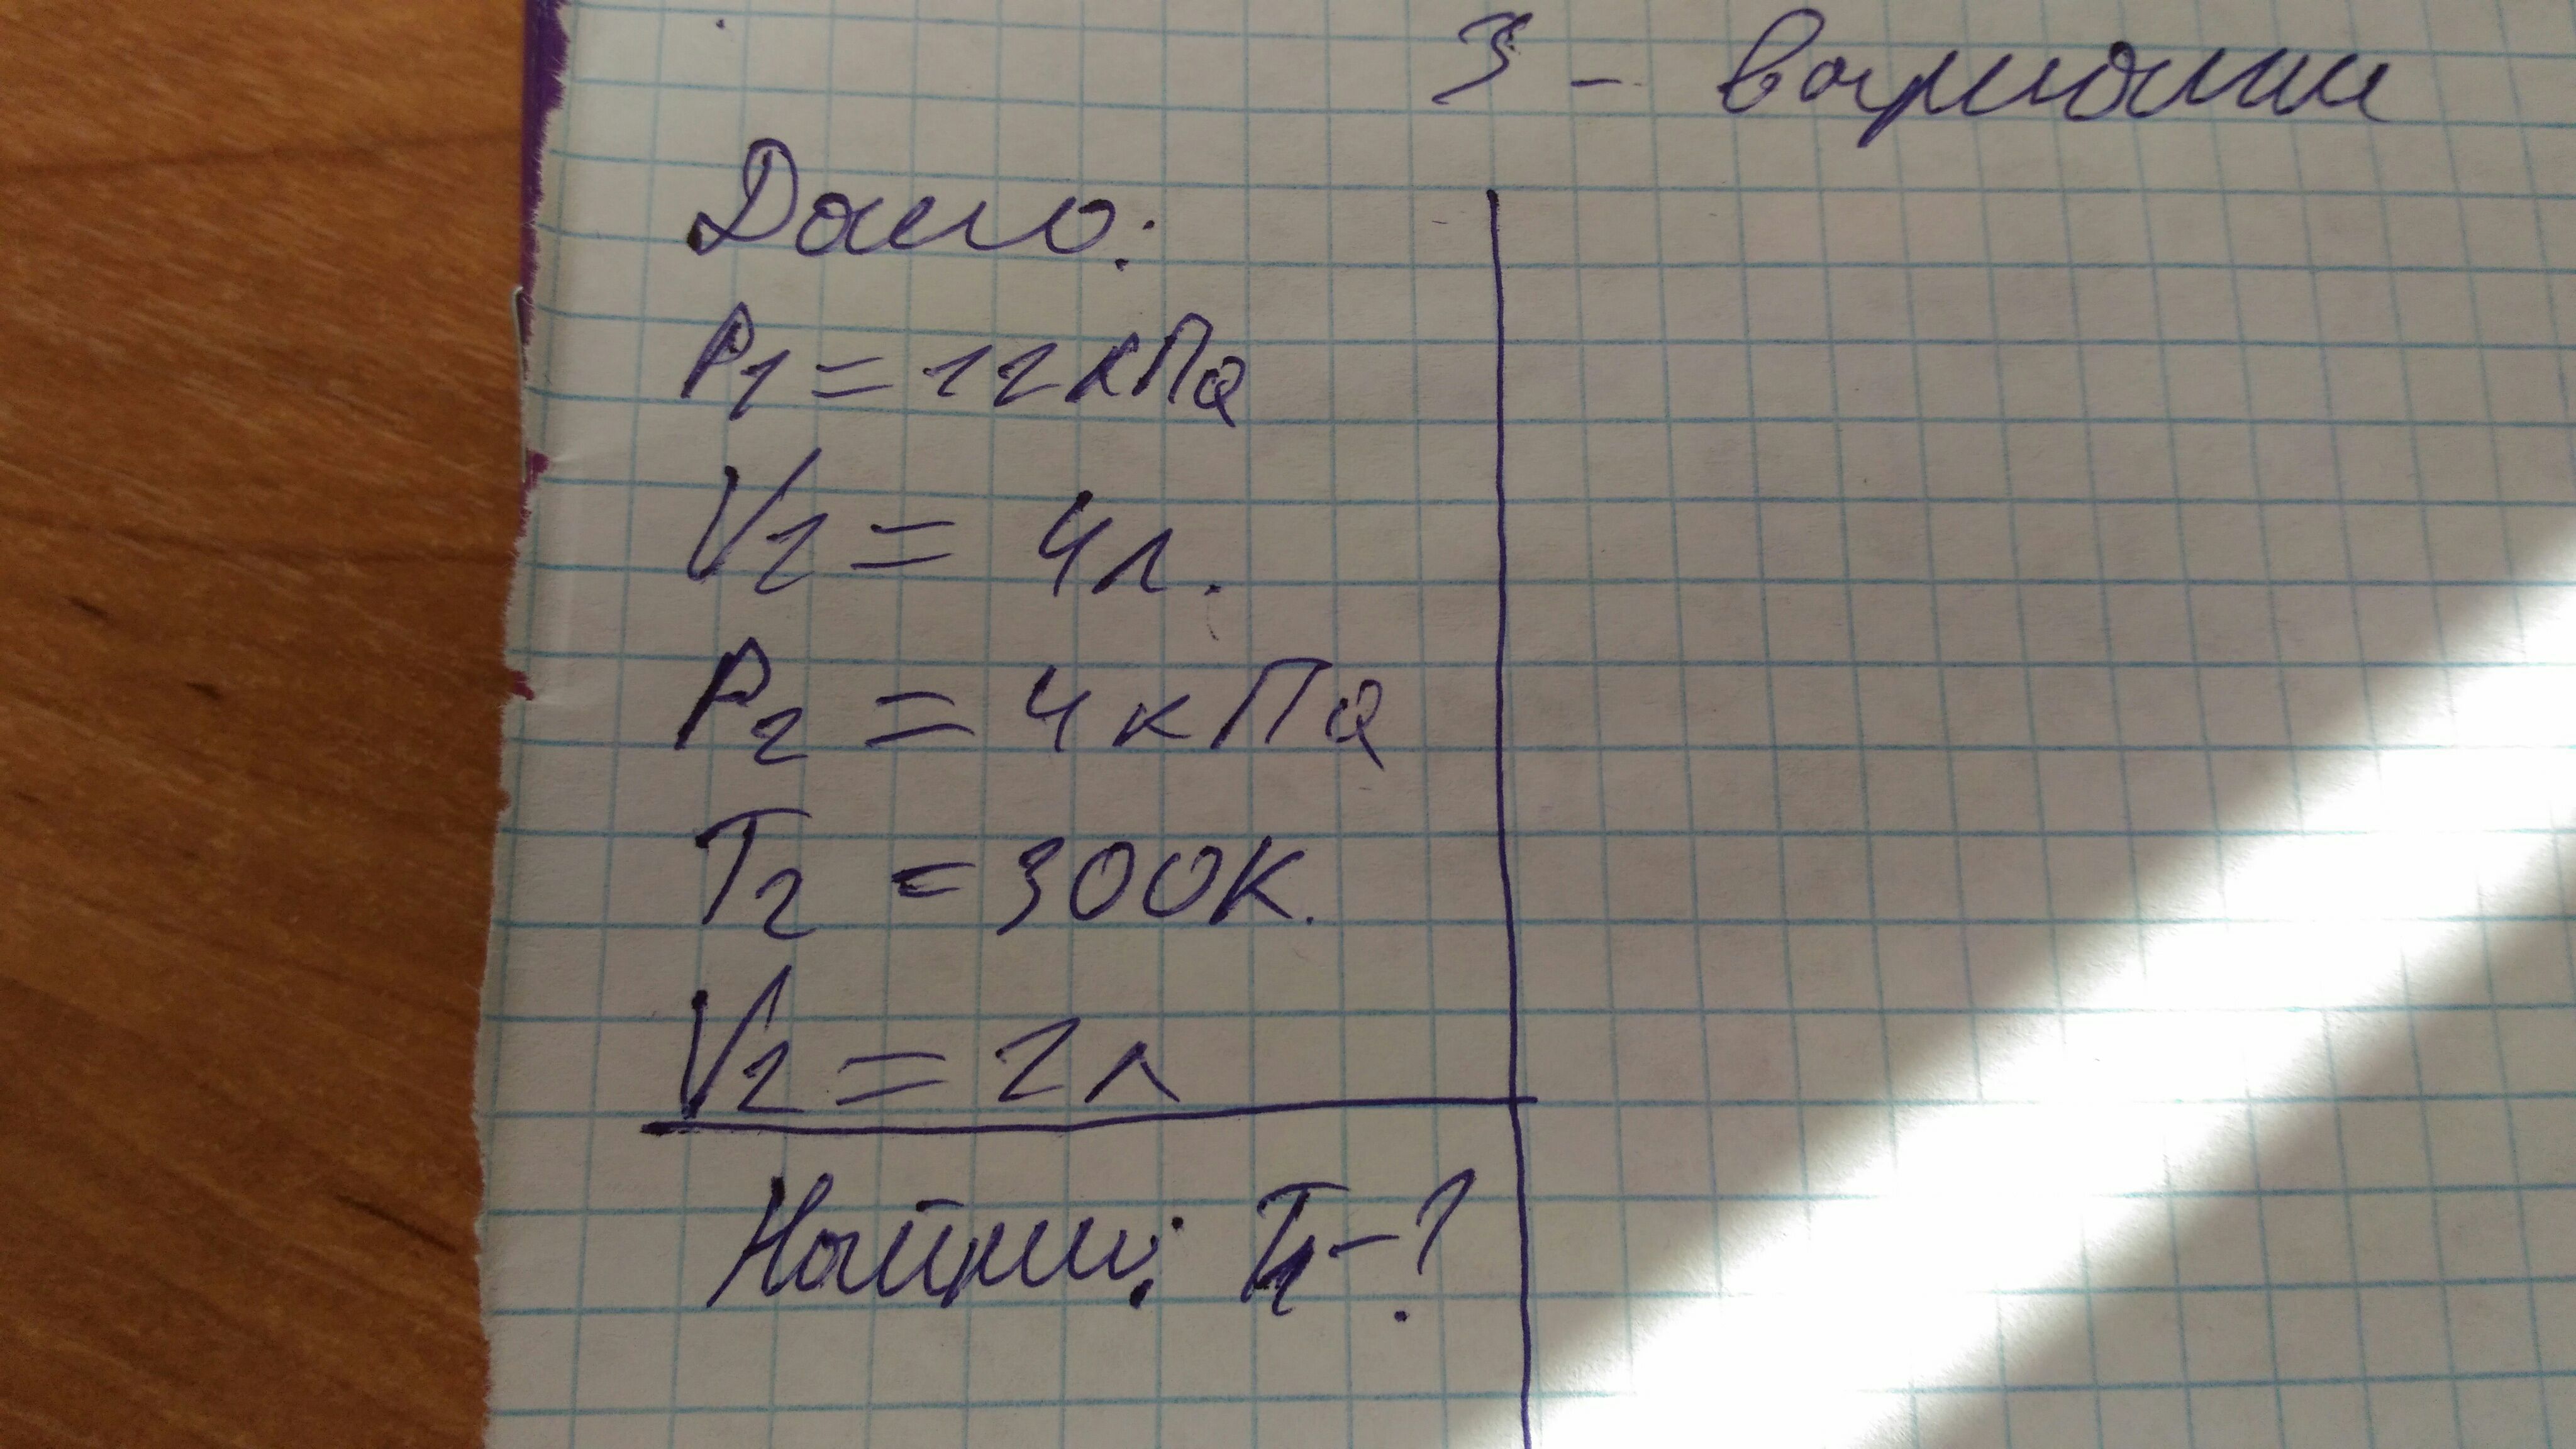 3 - вариант
Дано:
P1 = 12 кПа
V1 = 4 л.
P2 = 4 кПа
T2 = 300К.
V2 = 2 л
Найти: T1 - ?